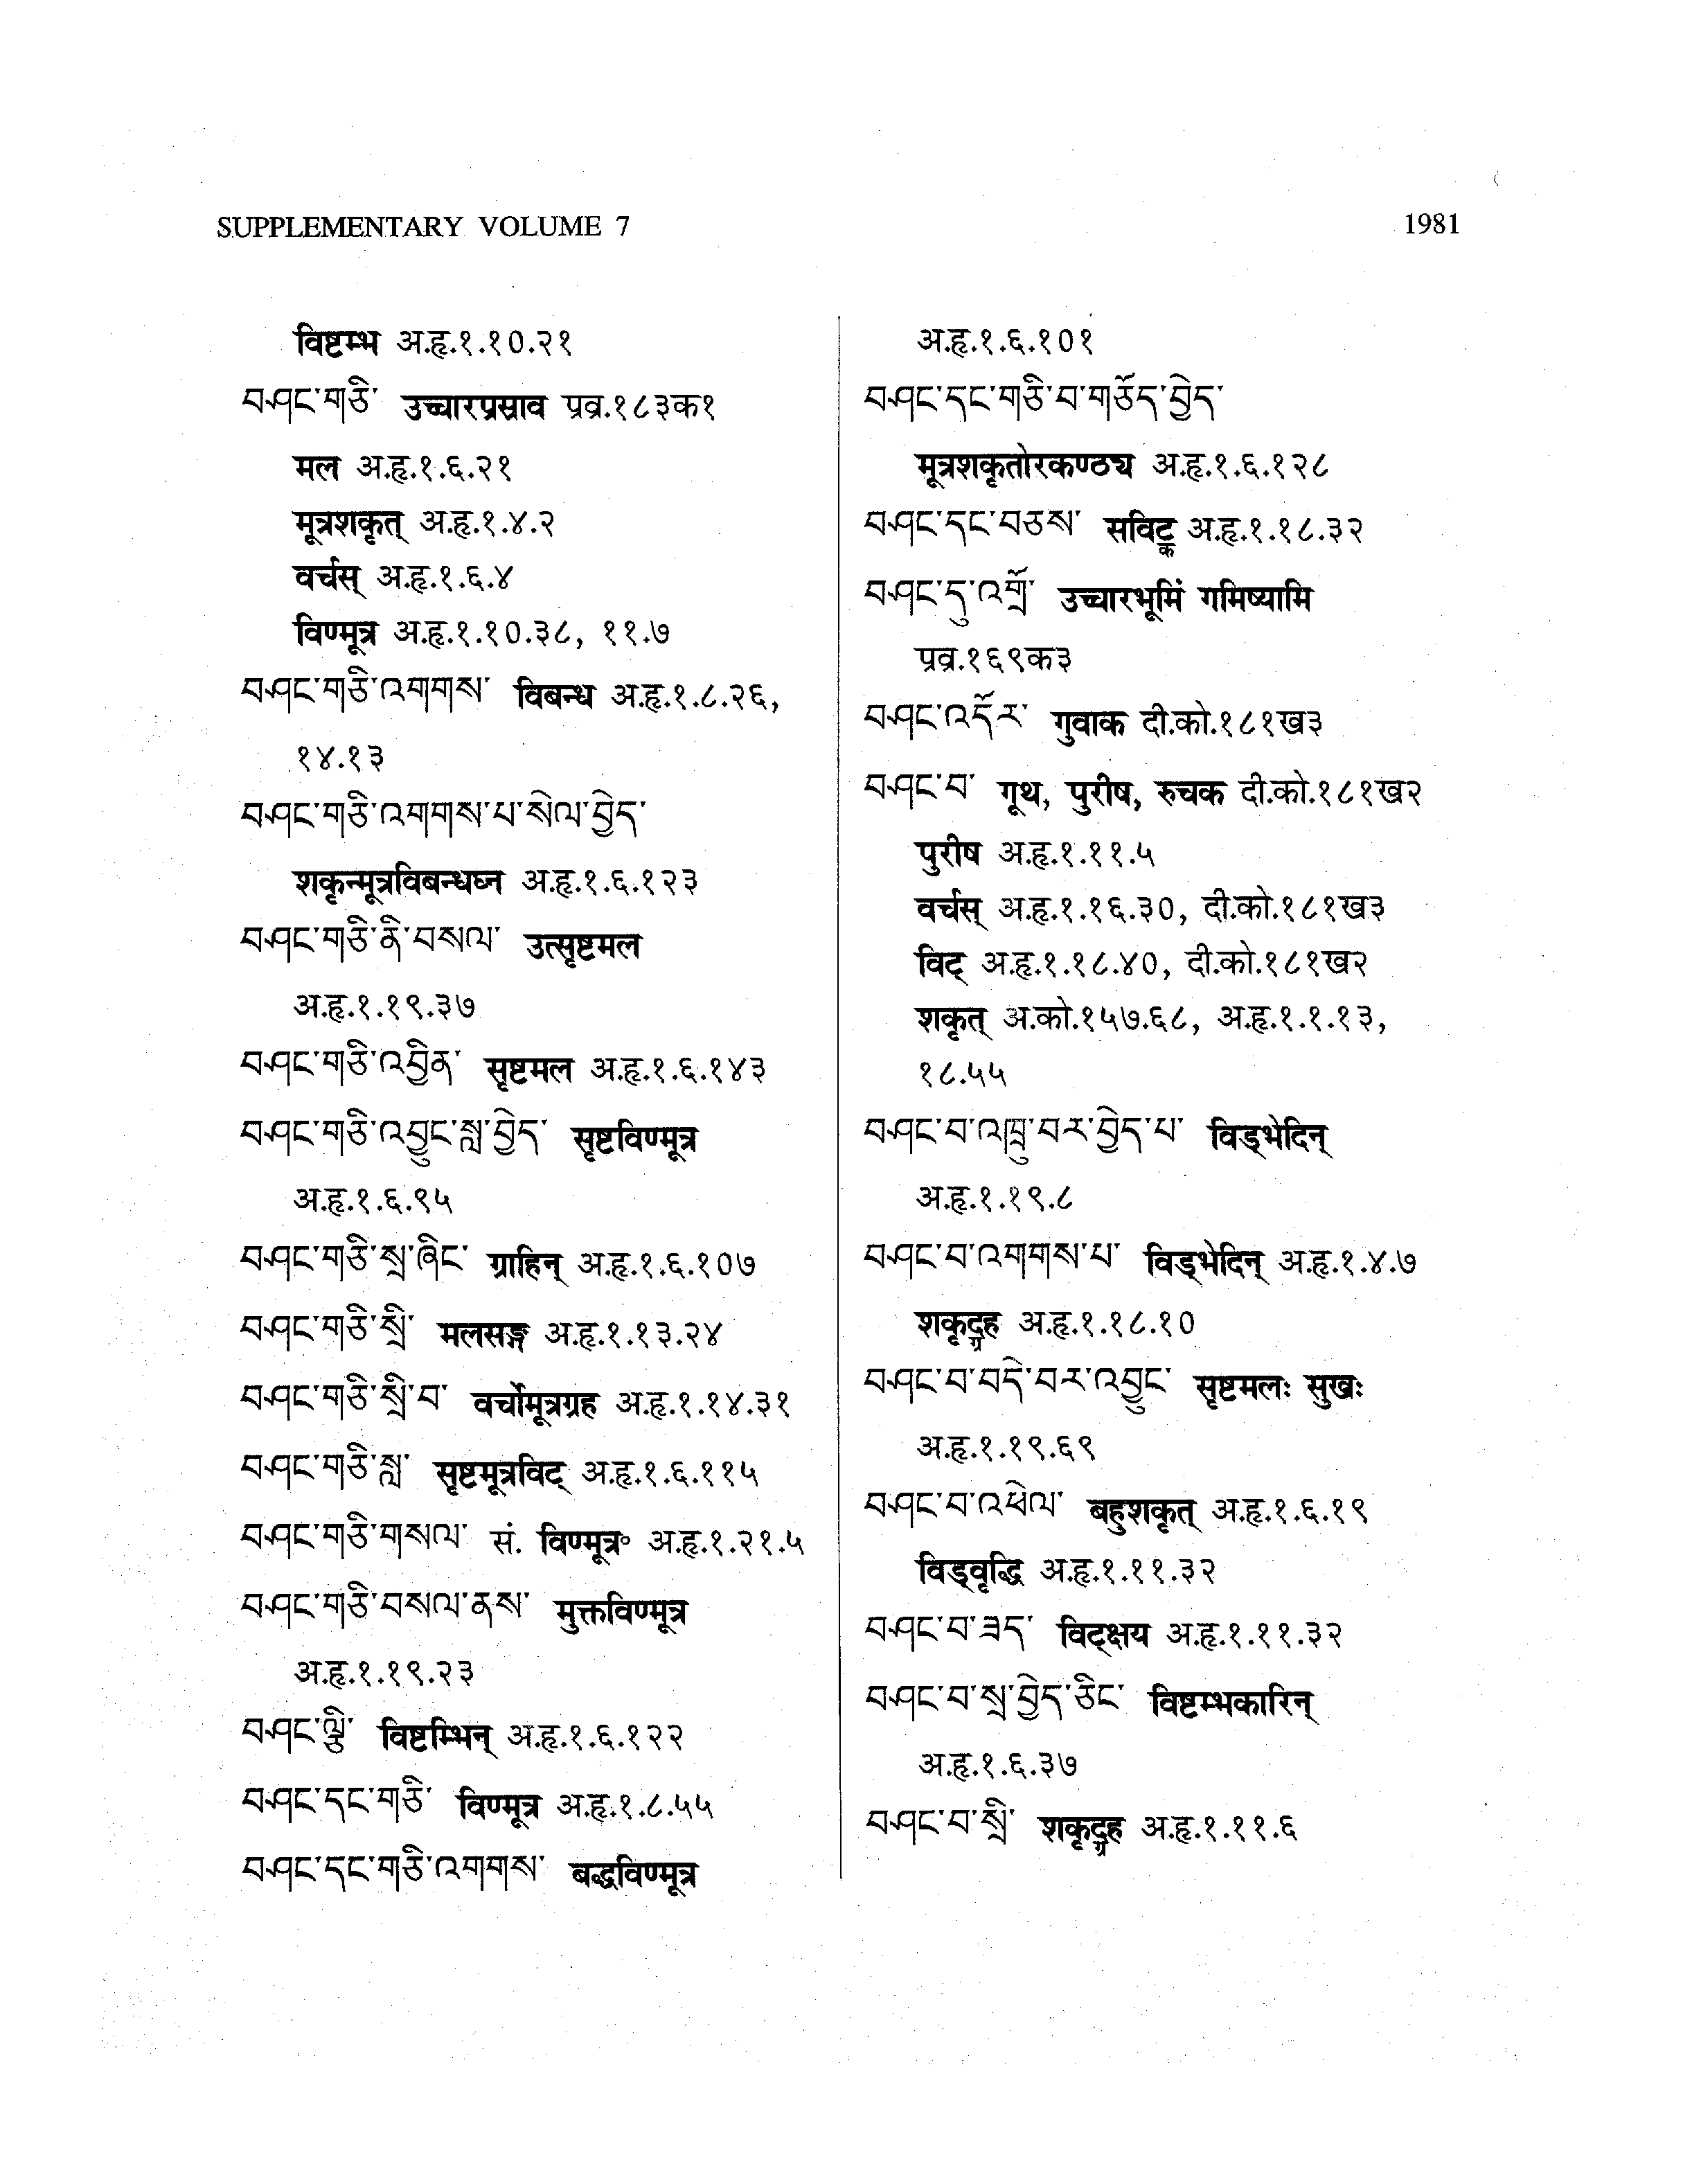 SUPPLEMENTARY VOLUME 7
1981
विष्टम्भ अ.हृ.१.१०.२१
བཤང་གཅི་ उच्चारप्रस्राव प्रव्र.१८३क१
मल अ.हृ.१.६.२१
मूत्रशकृत् अ.हृ.१.४.२
वर्चस् अ.हृ.१.६.४
विण्मूत्र अ.हृ.१.१०.३८, ११.७
བཤང་གཅི་འགགས་ विबन्ध अ.हृ.१.८.२६,
१४.१३
བཤང་གཅི་འགགས་པ་སེལ་བྱེད་
शकृन्मूत्रविबन्धघ्न अ.हृ.१.६.१२३
བཤང་གཅི་ནི་བསལ་ उत्सृष्टमल
अ.हृ.१.१९.३७
བཤང་གཅི་འབྱིན་ सृष्टमल अ.हृ.१.६.१४३
བཤང་གཅི་འབྱུང་སླ་བྱེད་ सृष्टविण्मूत्र
अ.हृ.१.६.९५
བཤང་གཅི་སྲ་ཞིང་ ग्राहिन् अ.हृ.१.६.१०७
བཤང་གཅི་སྲི་ मलसङ्ग अ.हृ.१.१३.२४
བཤང་གཅི་སྲི་བ་ वर्चोमूत्रग्रह अ.हृ.१.१४.३१
བཤང་གཅི་སླ་ सृष्टमूत्रविट् अ.हृ.१.६.११५
བཤང་གཅི་གསལ་ सं. विण्मूत्र॰ अ.हृ.१.२१.५
བཤང་གཅི་བསལ་ནས་ मुक्तविण्मूत्र
अ.हृ.१.१९.२३
བཤང་ལྕི་ विष्टम्भिन् अ.हृ.१.६.१२२
བཤང་དང་གཅི་ विण्मूत्र अ.हृ.१.८.५५
བཤང་དང་གཅི་འགགས་ बद्धविण्मूत्र
अ.हृ.१.६.१०१
བཤང་དང་གཅི་བ་གཅོད་བྱེད་
मूत्रशकृतोरकण्ठ्य अ.हृ.१.६.१२८
བཤང་དང་བཅས་ सविट्क अ.हृ.१.१८.३२
བཤང་དུ་འགྲོ་ उच्चारभूमिं गमिष्यामि
प्रव्र.१६९क३
བཤང་འདོར་ गुवाक दी.को.१८१ख३
བཤང་བ་ गूथ, पुरीष, रुचक दी.को.१८१ख२
पुरीष अ.हृ.१.११.५
वर्चस् अ.हृ.१.१६.३०, दी.को.१८१ख३
विट् अ.हृ.१.१८.४०, दी.को.१८१ख२
शकृत् अ.को.१५७.६८, अ.हृ.१.१.१३,
१८.५५
བཤང་བ་འཁྲུ་བར་བྱེད་པ་ विड्भेदिन्
अ.हृ.१.१९.८
བཤང་བ་འགགས་པ་ विड्भेदिन् अ.हृ.१.४.७
शकृद्ग्रह अ.हृ.१.१८.१०
བཤང་བ་བདེ་བར་འབྱུང་ सृष्टमलः सुखः
अ.हृ.१.१९.६९
བཤང་བ་འཕེལ་ बहुशकृत् अ.हृ.१.६.१९
विड्वृद्धि अ.हृ.१.११.३२
བཤང་བ་ཟད་ विट्क्षय अ.हृ.१.११.३२
བཤང་བ་སྲ་བྱེད་ཅིང་ विष्टम्भकारिन्
अ.हृ.१.६.३७
བཤང་བ་སྲི་ शकृद्ग्रह अ.हृ.१.११.६